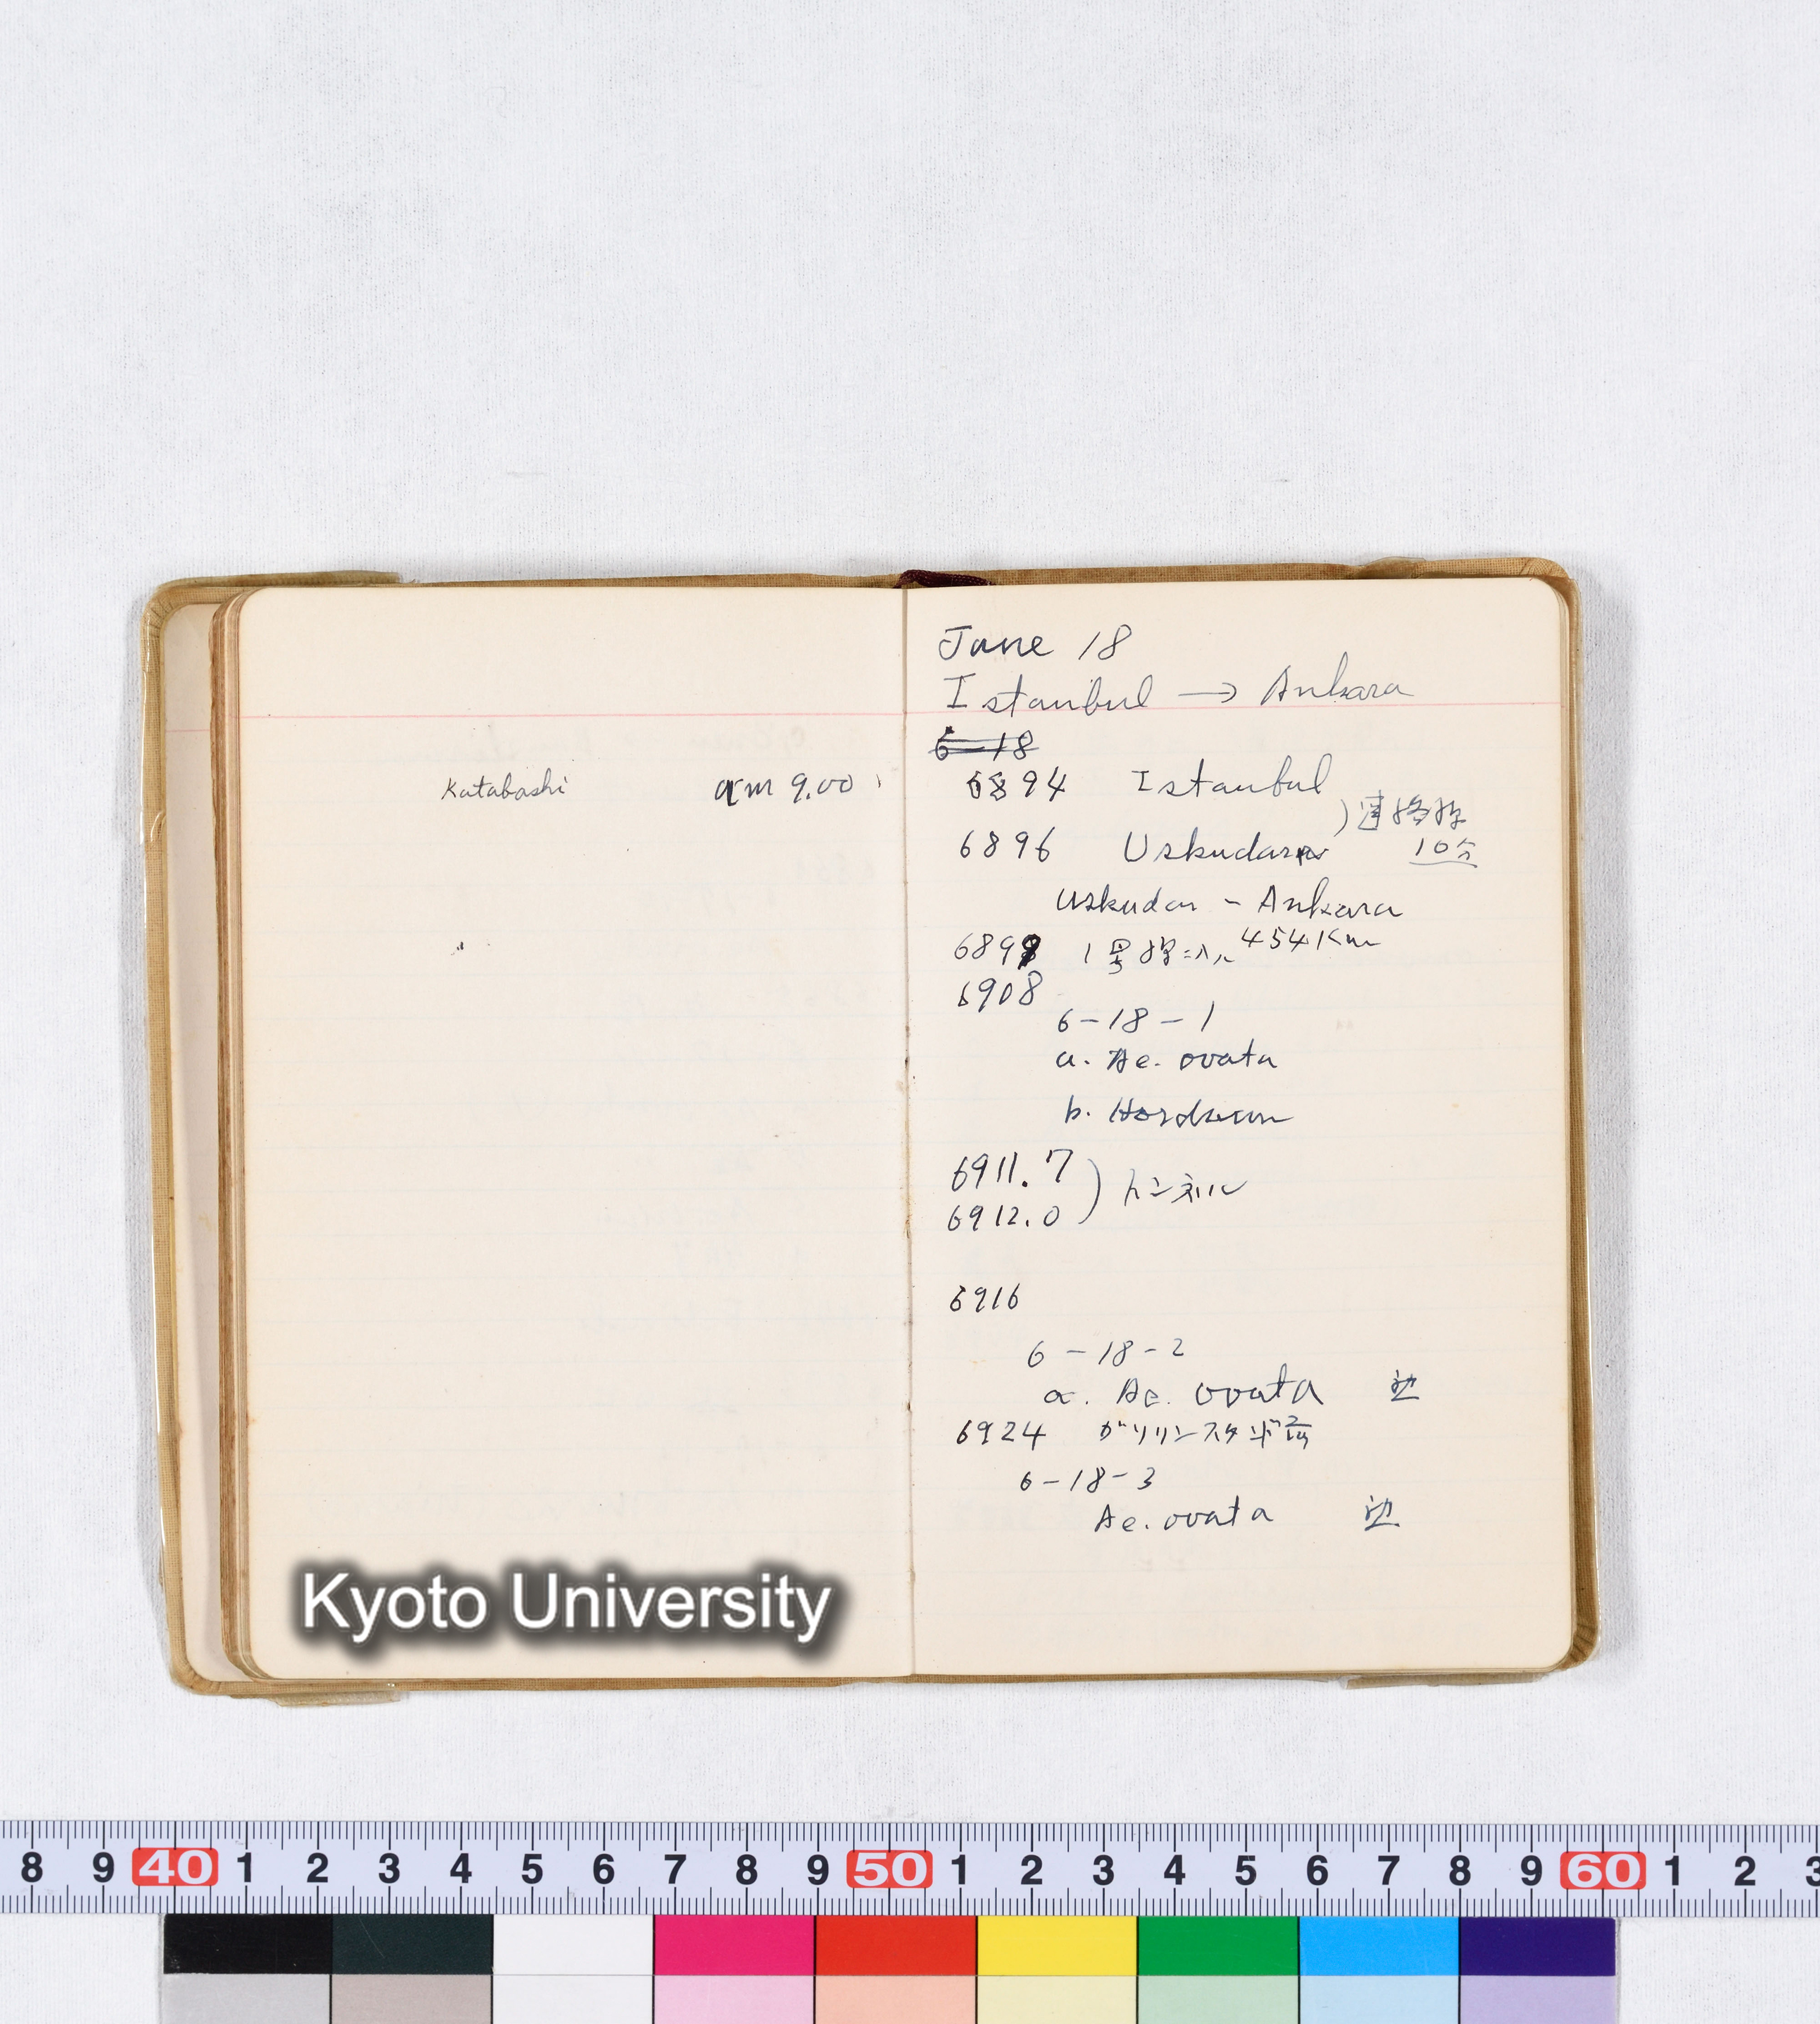 Katabashi am 9.00
June 18
Istanbul → Ankara
6-18
6894 Istanbul
)連絡船
6896 Uskudar 10分
Uskudar - Ankara
454Km
689 1号線ニ入ル
6908
6-18-1
a. Ae. ovata
b. Hordeum
6911.7
) トンネル
6912.0
6916
6-18-2
a. Ae. ovata
6924 ガソリンスタンド
6-18-3
Ae. ovata
Kyoto University
8 9 40 1 2 3 4 5 6 7 8 9 50 1 2 3 4 5 6 7 8 9 60 1 2 3